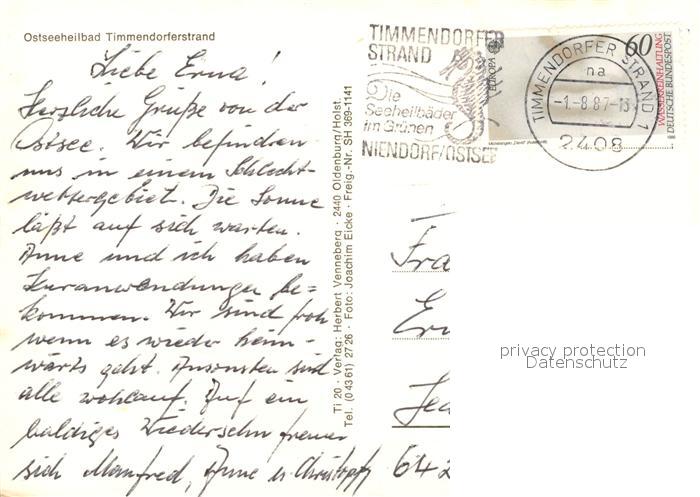 Ostseeheilbad Timmendorferstrand
Liebe Erna!
Herzliche Grüße von der
Ostsee. Wir befinden
uns in einem Schlecht-
wettergebiet. Die Sonne
läßt auf sich warten.
Anne und ich haben
Kuranwendungen be=
kommen. Wir sind froh
wenn es wieder heim-
wärts geht. Ansonsten sind
alle wohlauf. Auf ein
baldiges Wiedersehn freuen
sich Manfred, Anne u. Christoph
Ti 20 · Verlag: Herbert Venneberg · 2440 Oldenburg/Holst.
Tel. (0 43 61) 27 26 · Foto: Joachim Eicke · Freig.-Nr. SH 369-1141
TIMMENDORFER
STRAND
Die
Seeheilbäder
im Grünen
NIENDORF/OSTSEE
EUROPA
60
WASSERREINHALTUNG
DEUTSCHE BUNDESPOST
TIMMENDORFER STRAND 1
na
-1.-8.87-13
2408
Fra
Er
642
privacy protection
Datenschutz